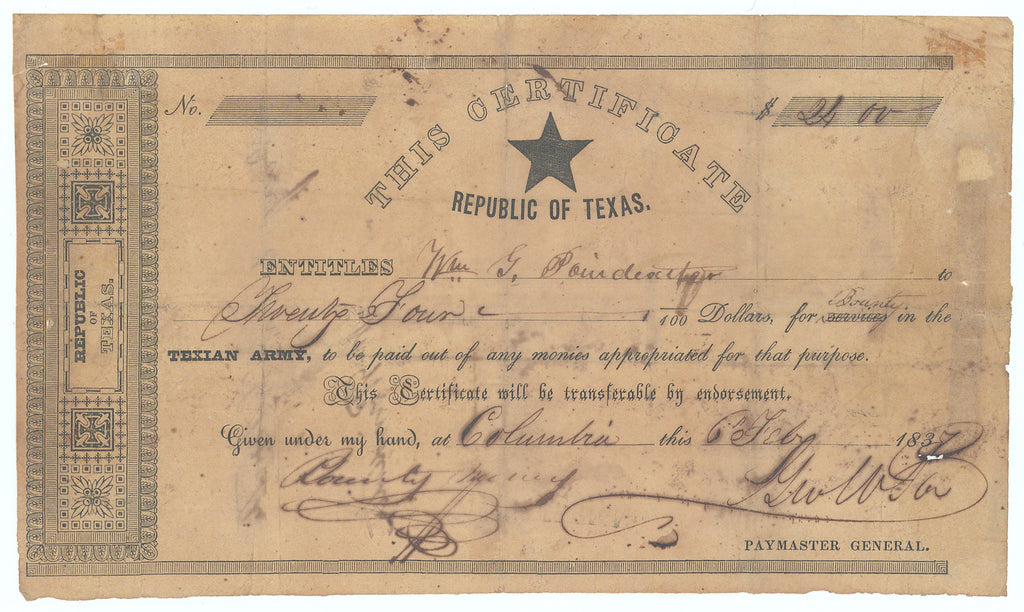 No. $ 24 00
THIS CERTIFICATE
REPUBLIC OF TEXAS.
ENTITLES Wm G. Poindexter to
Twenty Four /100 Dollars, for services Bounty in the
TEXIAN ARMY, to be paid out of any monies appropriated for that purpose.
This Certificate will be transferable by endorsement.
Given under my hand, at Columbia this 6 Feby 1837
Bounty money
Geo W
PAYMASTER GENERAL.
REPUBLIC
OF
TEXAS.